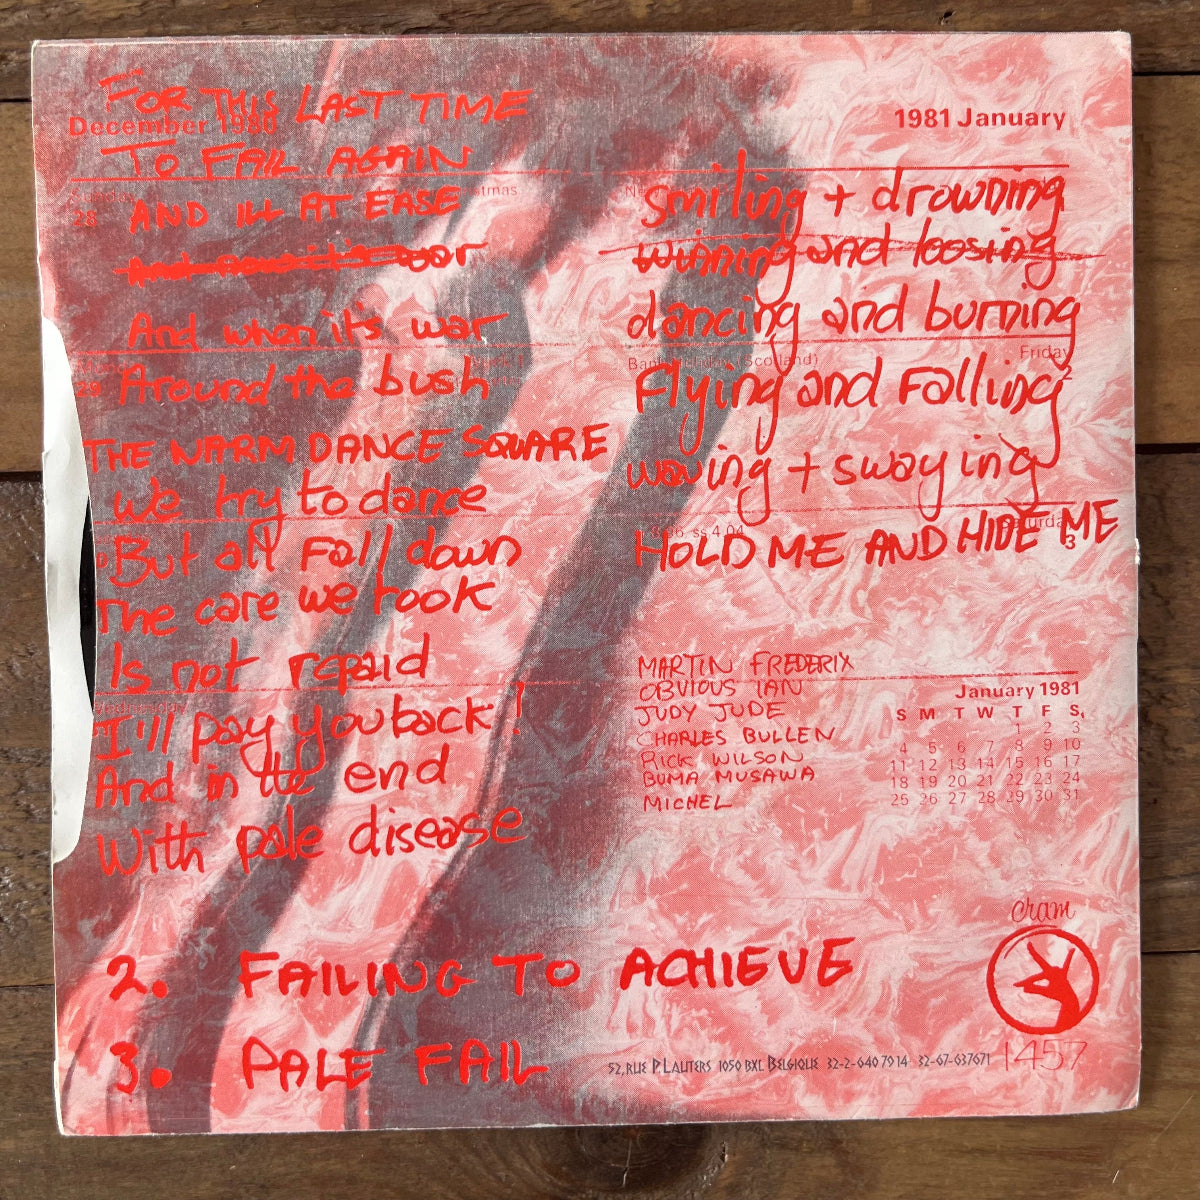 FOR THIS LAST TIME
December 1980
TO FAIL AGAIN
28
AND ILL AT EASE
war
And when it's war
29
Around the bush
THE WARM DANCE SQUARE
We try to dance
But all fall down
The care we took
Is not repaid
Wednesday
I'll pay you back!
And in the end
With pale disease
1981 January
Smiling + drowning
winning and loosing
dancing and burning
Bank Holiday (Scotland)
Friday
2
Flying and Falling
waving + swaying
Saturday
3
HOLD ME AND HIDE ME
MARTIN FREDERIX
OBVIOUS IAN
JUDY JUDE
CHARLES BULLEN
RICK WILSON
BUMA MUSAWA
MICHEL
January 1981
S M T W T F S
1 2 3
4 5 6 7 8 9 10
11 12 13 14 15 16 17
18 19 20 21 22 23 24
25 26 27 28 29 30 31
2. FAILING TO ACHIEVE
3. PALE FAIL
cram
52, RUE P. LAUTERS 1050 BXL BELGIQUE 32-2-640 79 14 32-67-637671
1457